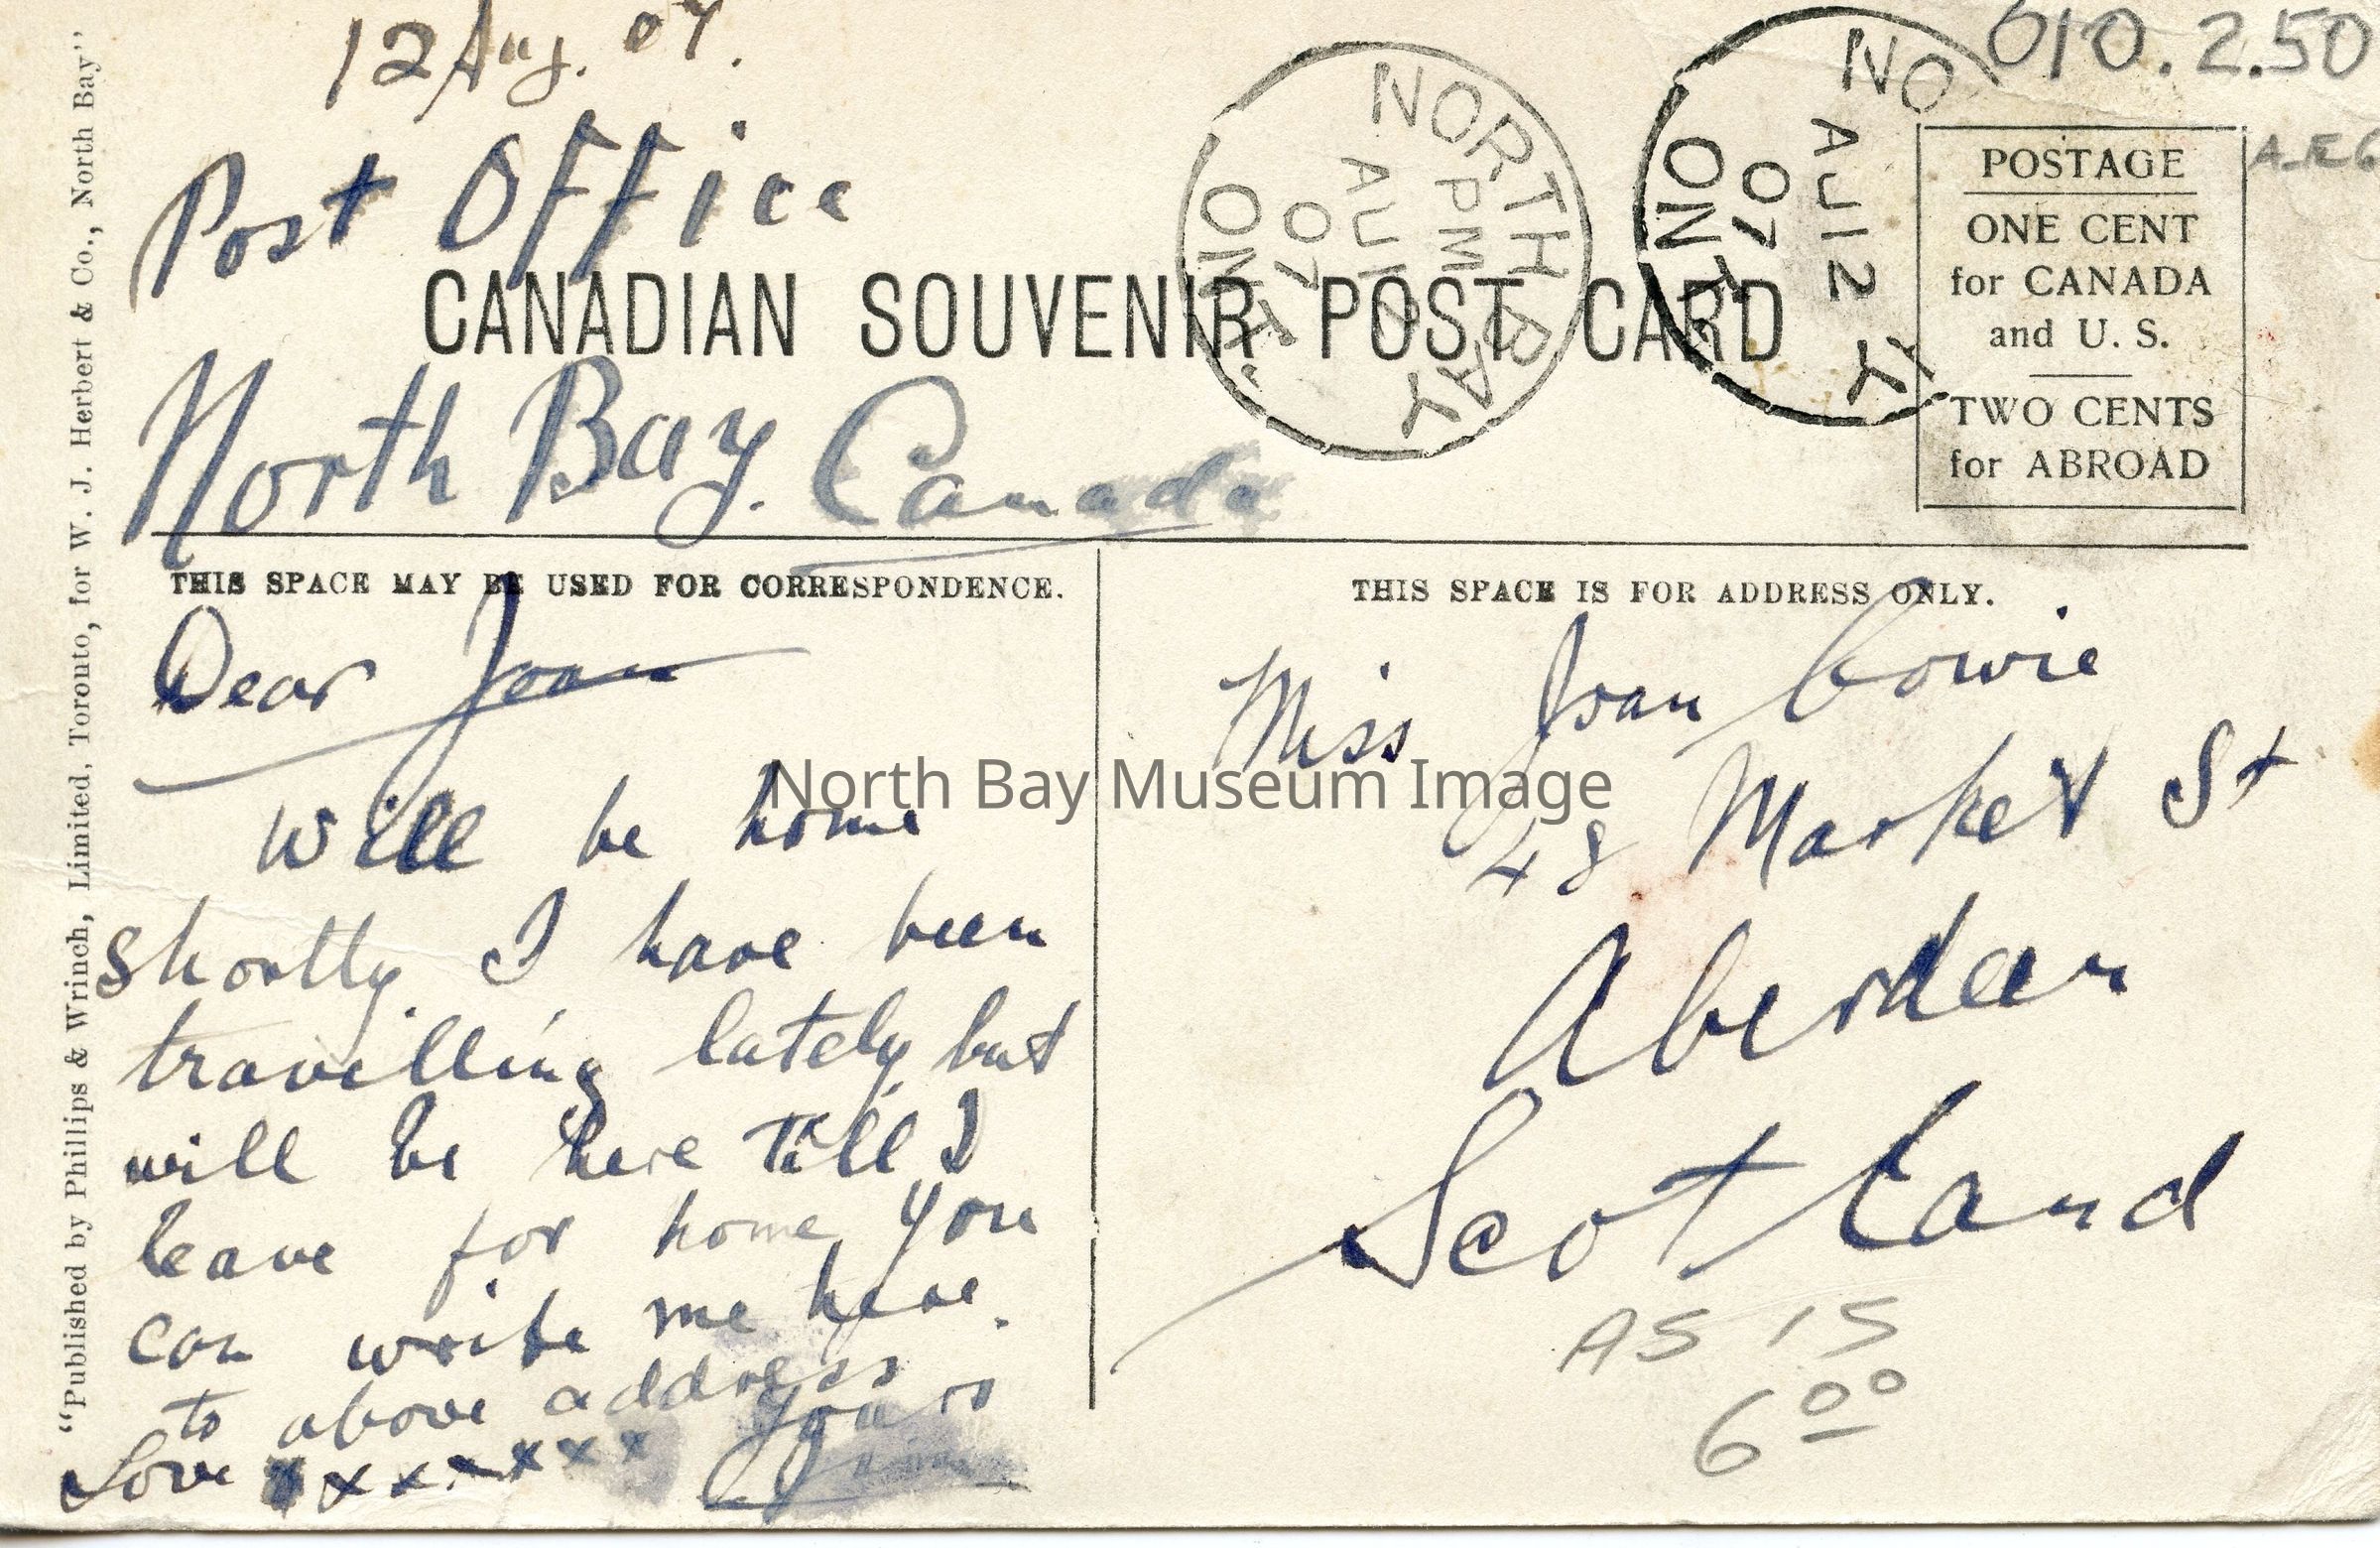 12 Aug. 07.
010.2.50
Post Office
NORTH BAY
PM
AU 12
07
ONT.
NO Y
AU 12
07
ONT
POSTAGE
ONE CENT
for CANADA
and U. S.
TWO CENTS
for ABROAD
CANADIAN SOUVENIR POST CARD
North Bay. Canada
THIS SPACE MAY BE USED FOR CORRESPONDENCE.
Dear Joan
will be home
shortly. I have been
travelling lately but
will be here till I
leave for home you
can write me here.
to above address
Yours
Love x x x x x x x
Jim
THIS SPACE IS FOR ADDRESS ONLY.
Miss Joan Cowie
48 Market St
Aberdeen
Scotland
AS IS
6 00
"Published by Phillips & Wrinch, Limited, Toronto, for W. J. Herbert & Co., North Bay"
North Bay Museum Image